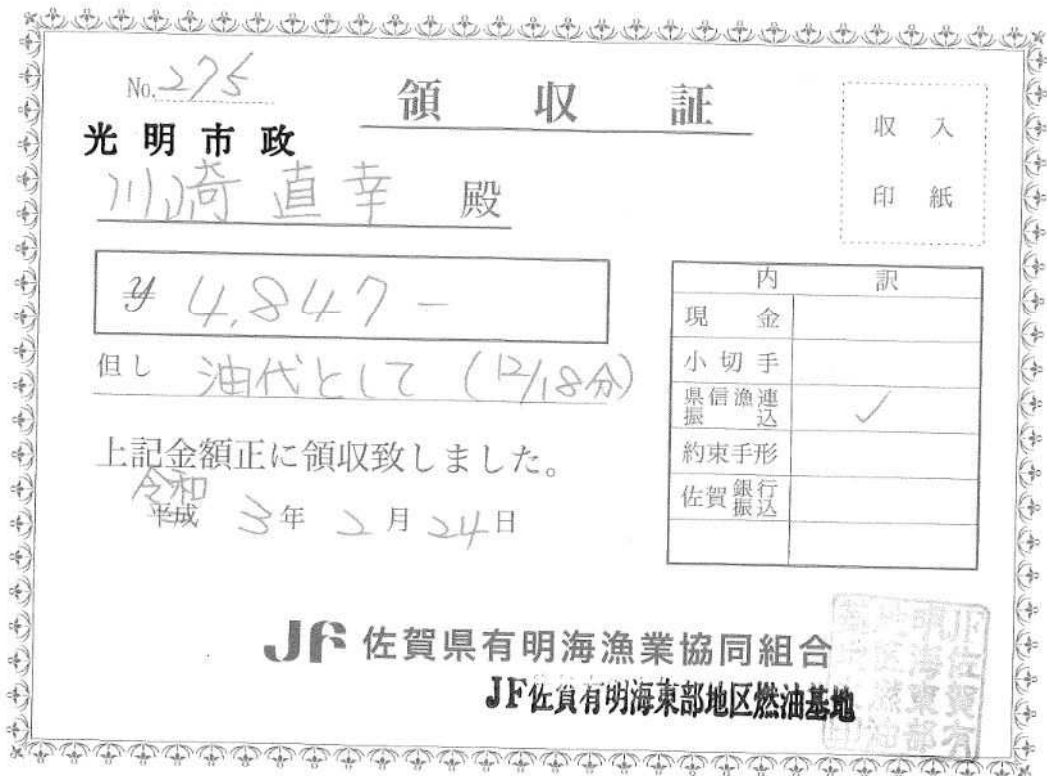 No. 275
領収証
光明市政
川崎 直幸 殿
¥ 4,847 -
但し 油代として (12/18分)
上記金額正に領収致しました。
令和
平成 3年 2月 24日
収入
印紙
内訳
現金
小切手
県信漁連振込 ✓
約束手形
佐賀銀行振込
JF 佐賀県有明海漁業協同組合
JF佐賀有明海東部地区燃油基地